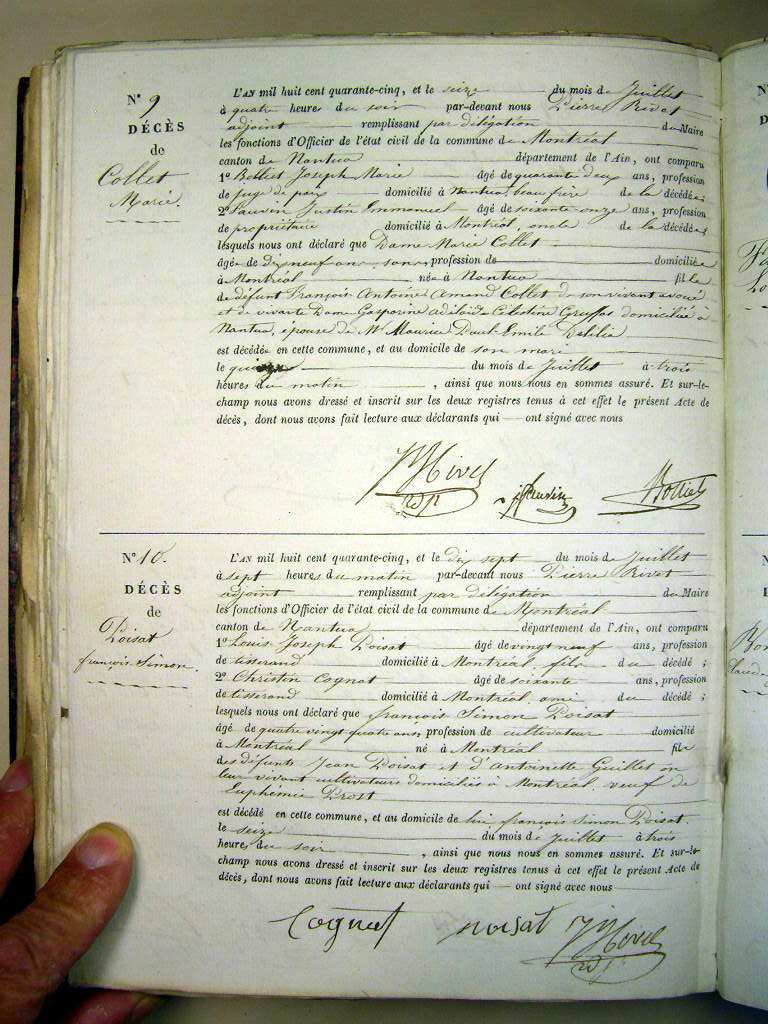 N° 9
DÉCÈS
de
Collet
Marie.
L'AN mil huit cent quarante-cinq, et le seize du mois de Juillet
à quatre heures du soir par-devant nous Pierre Rivet
adjoint remplissant par délégation de Maire
les fonctions d'Officier de l'état civil de la commune de Montréal
canton de Nantua département de l'Ain, ont comparu
1° Bolliet Joseph Marie âgé de quarante deux ans, profession
de juge de paix domicilié à Nantua beau frère de la décédée;
2° Jauvin Justin Emmanuel âgé de soixante onze ans, profession
de propriétaire domicilié à Montréal, oncle de la décédée;
lesquels nous ont déclaré que Dame Marie Collet
âgée de dix neuf ans, sans profession de domiciliée
à Montréal née à Nantua fille
de défunt François Antoine Amand Collet de son vivant avoué
et de vivante Dame Gasparine Adélaïde Célestine domiciliée à
Nantua, épouse de Mr Maurice Paul Emile
est décédée en cette commune, et au domicile de son mari
le du mois de Juillet à trois
heures du matin, ainsi que nous nous en sommes assuré. Et sur-le-
champ nous avons dressé et inscrit sur les deux registres tenus à cet effet le présent Acte de
décès, dont nous avons fait lecture aux déclarants qui — ont signé avec nous
Rivet
Jauvin
Bolliet
N° 10.
DÉCÈS
de
Poisat
françois Simon.
L'AN mil huit cent quarante-cinq, et le dix sept du mois de Juillet
à sept heures du matin par-devant nous Pierre Rivet
adjoint remplissant par délégation de Maire
les fonctions d'Officier de l'état civil de la commune de Montréal
canton de Nantua département de l'Ain, ont comparu
1° Louis Joseph Poisat âgé de vingt neuf ans, profession
de tisserand domicilié à Montréal, fils du décédé;
2° Christin Cognat âgé de soixante ans, profession
de tisserand domicilié à Montréal, ami du décédé;
lesquels nous ont déclaré que françois Simon Poisat
âgé de quatre vingt quatre ans profession de cultivateur domicilié
à Montréal né à Montréal fils
des défunts Jean Poisat et d'Antoinette Guillet en
leur vivant cultivateurs domiciliés à Montréal, veuf de
Euphémie Prost
est décédé en cette commune, et au domicile de lui françois Simon Poisat.
le seize du mois de Juillet à trois
heures du soir, ainsi que nous nous en sommes assuré. Et sur-le-
champ nous avons dressé et inscrit sur les deux registres tenus à cet effet le présent Acte de
décès, dont nous avons fait lecture aux déclarants qui — ont signé avec nous
Cognat
poisat
Rivet